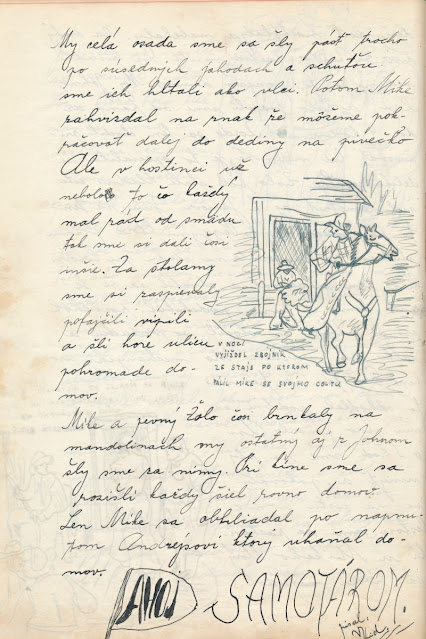 My celá osada sme sa šly pásť trocho
po súsedných jahodach a schuťou
sme ich hltali ako vlci. Potom Mike
zahvizdal na znak že môžeme pok-
račovať dalej do dediny na pivečko
Ale v hostinci už
nebolo to čo každý
mal rád od smädu
tak sme si dali čosi
inšie. Za stolamy
sme si zaspievaly
pofajčili vipili
a šli hore ulicu
pohromade do-
mov.
V NOCI
VYJIŠOEL ZBOJNIK
ZE STAJE PO KTOROM
PÁLIL MIKE SE SVOJMO COLTU
Mike a pevný Žolo čosi brnkaly na
mandolinach my ostatný aj z Johnom
šly sme za nimy. Pri kine sme sa
rozišli každy šiel rovno domov.
Len Mike sa obhliadal po napnu-
tom Andrejsovi ktorý uháňal do-
mov.
AHOJ SAMOTÁROM.
písal: